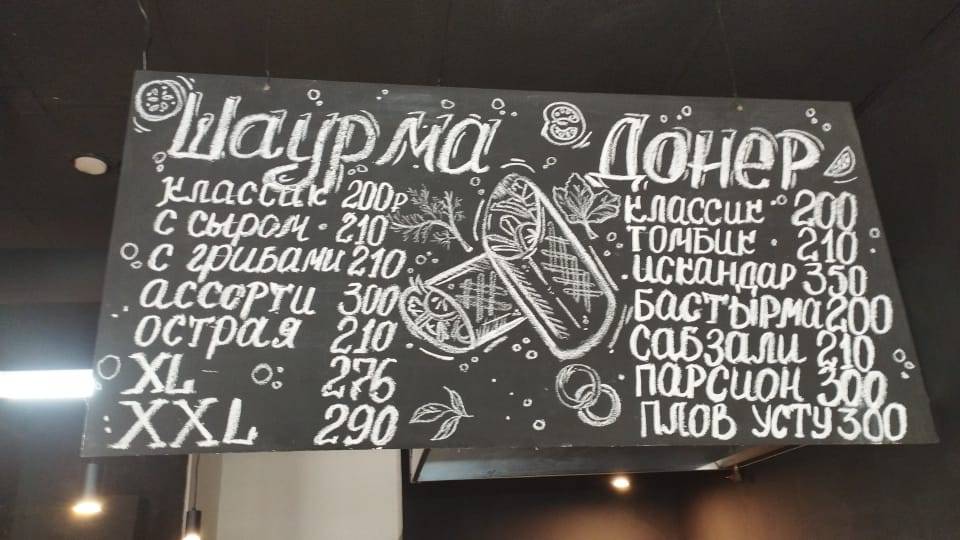 Шаурма
классик 200р
с сыром · 210
с грибами 210
ассорти 300
острая 210
XL 275
XXL 290
Донер
классик · 200
томбик · 210
искандар 350
бастырма 200
сабзали 210
парсион 300
плов усту 300